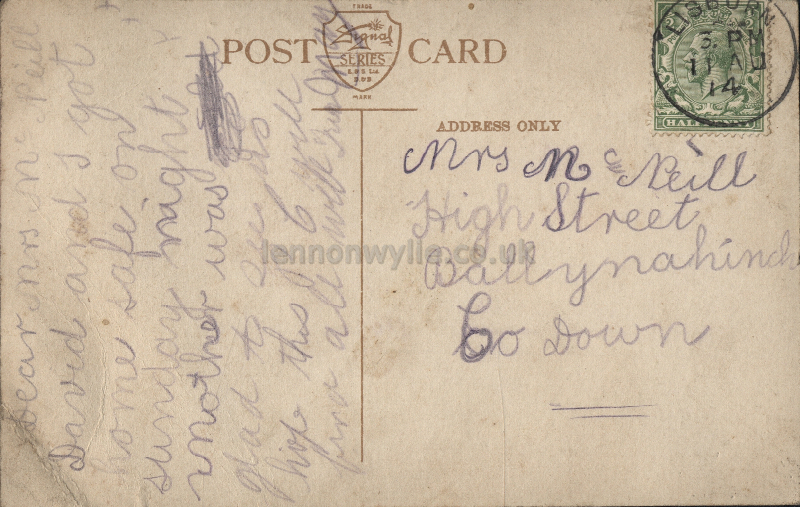 TRADE
Signal
SERIES
E. & S. Ltd.
DUB
MARK
POST CARD
ADDRESS ONLY
LISBURN
3. PM
11 AU
14
HALF
Mrs Mc Neill
High Street
Ballynahinch
Co Down
Dear Mrs Mc Neill
David and I got
home safe on
sunday night
mother was
glad to see us
hope this will
find all well
lennonwylie.co.uk